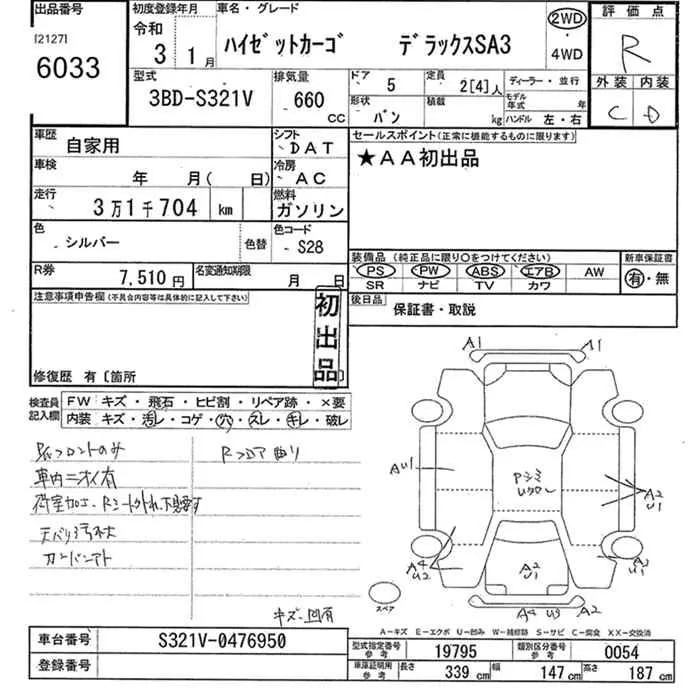 出品番号
[2127]
6033
初度登録年月
令和
3 1月
車名・グレード
ハイゼットカーゴ デラックスSA3
2WD
・
4WD
評価点
R
外装 内装
C D
型式
3BD-S321V
排気量
660 CC
ドア 5
定員 2[4]人
ディーラー・並行
形状 バン
積載 kg
モデル年式 年
ハンドル 左・右
車歴 自家用
シフト DAT
車検 年 月( 日)
冷房 AC
走行 3万1千704 km
燃料 ガソリン
色 シルバー
色替
色コード S28
R券 7,510円
名変通知期限 月 日
セールスポイント(正常に機能するものに限ります)
★AA初出品
装備品(純正品に限り○をつけてください)
新車保証書
PS PW ABS エアB AW
SR ナビ TV カワ
有・無
後日品 保証書・取説
注意事項申告欄(不具合内容等は具体的に記入して下さい)
初出品
修復歴 有〔箇所
検査員記入欄
FW キズ・飛石・ヒビ割・リペア跡・×要
内装 キズ・汚レ・コゲ・穴・スレ・キレ・破レ
R.フロア曲り
車内ニオイ有
天バリ汚れ大
カンバンアト
キズ・凹有
A1 A1
AU1
Pシミ
A2
U1
A4
U2
A2
U1
A3
U1
A4 U3 A2
スペア
A-キズ E-エクボ U-凹み W-補修跡 S-サビ C-腐食 XX-交換済
車台番号 S321V-0476950
登録番号
型式指定番号 参考 19795
類別区分番号 参考 0054
車庫証明用 参考 長さ 339 cm 幅 147 cm 高さ 187 cm